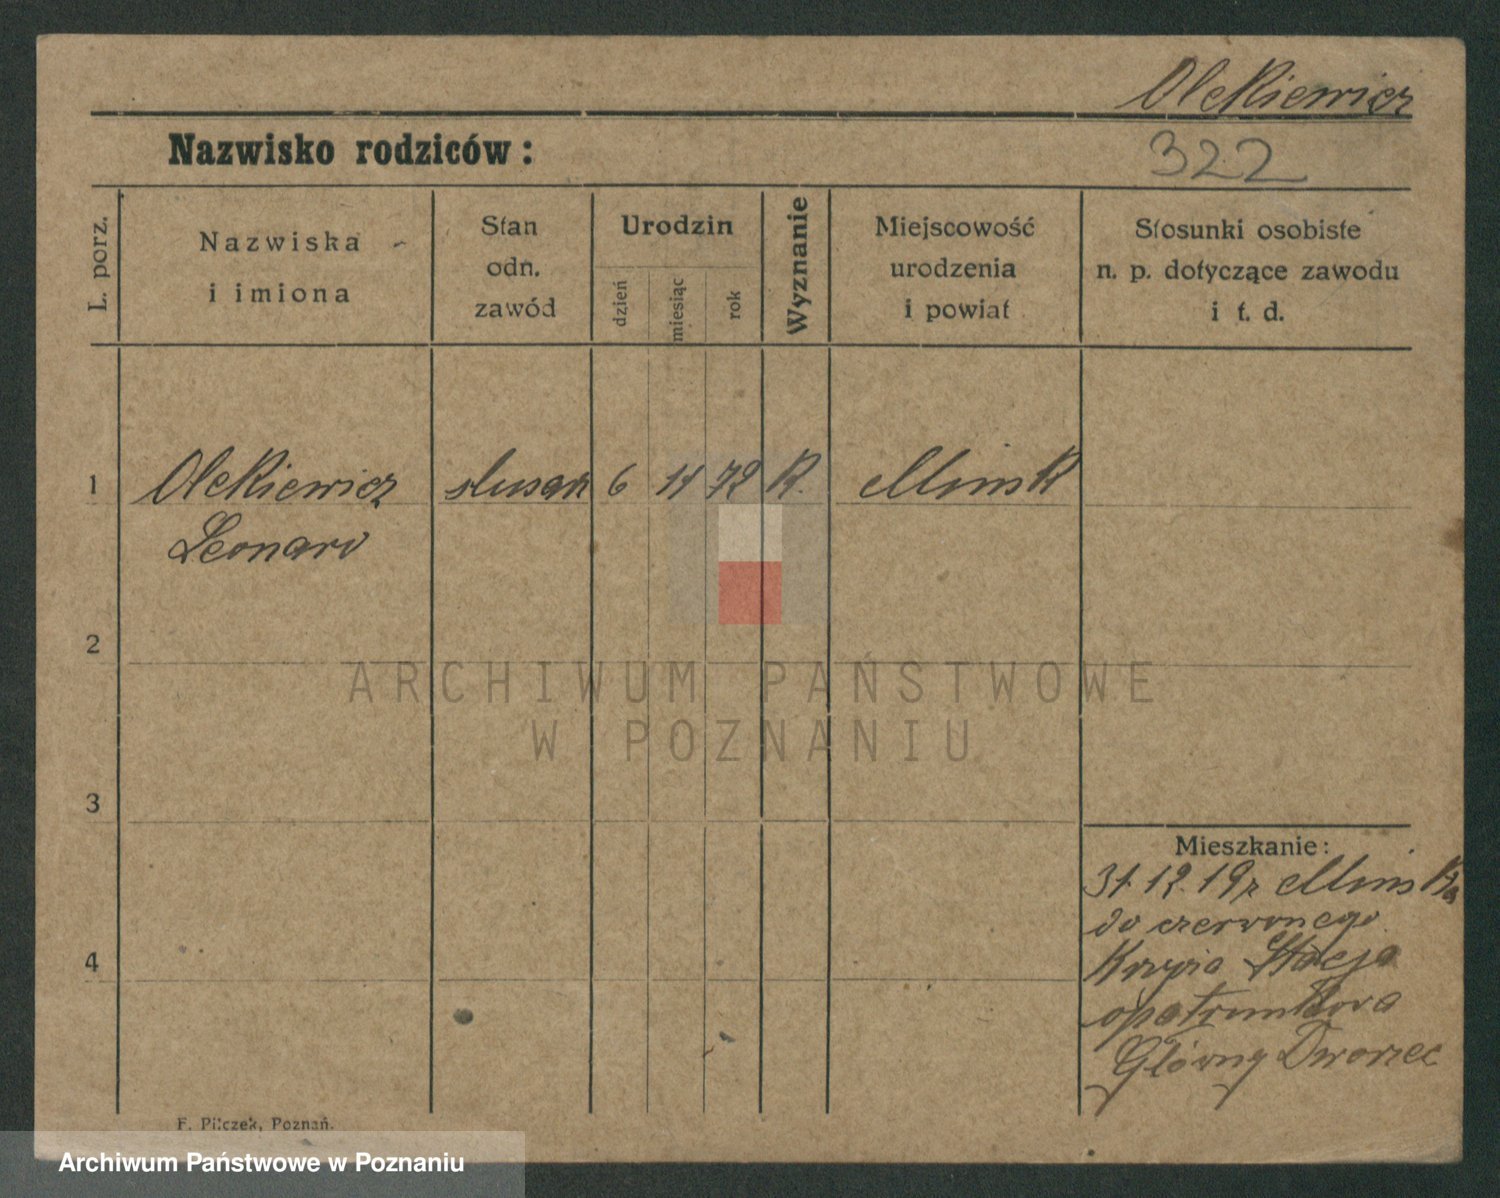 Olekiewicz
Nazwisko rodziców:
322
L. porz.
Nazwiska
i imiona
Stan
odn.
zawód
Urodzin
dzień
miesiąc
rok
Wyznanie
Miejscowość
urodzenia
i powiat
Stosunki osobiste
n. p. dotyczące zawodu
i t. d.
1
Olekiewicz ślusarz 6 11 72 K. Minsk
Leonard
2
ARCHIWUM PAŃSTWOWE
W POZNANIU
3
Mieszkanie:
31.12.19 z Minska
do czerwonego
4
Krzyża Stacja
opatrunkowa
Główny Dworzec
F. Pilczek, Poznań.
Archiwum Państwowe w Poznaniu